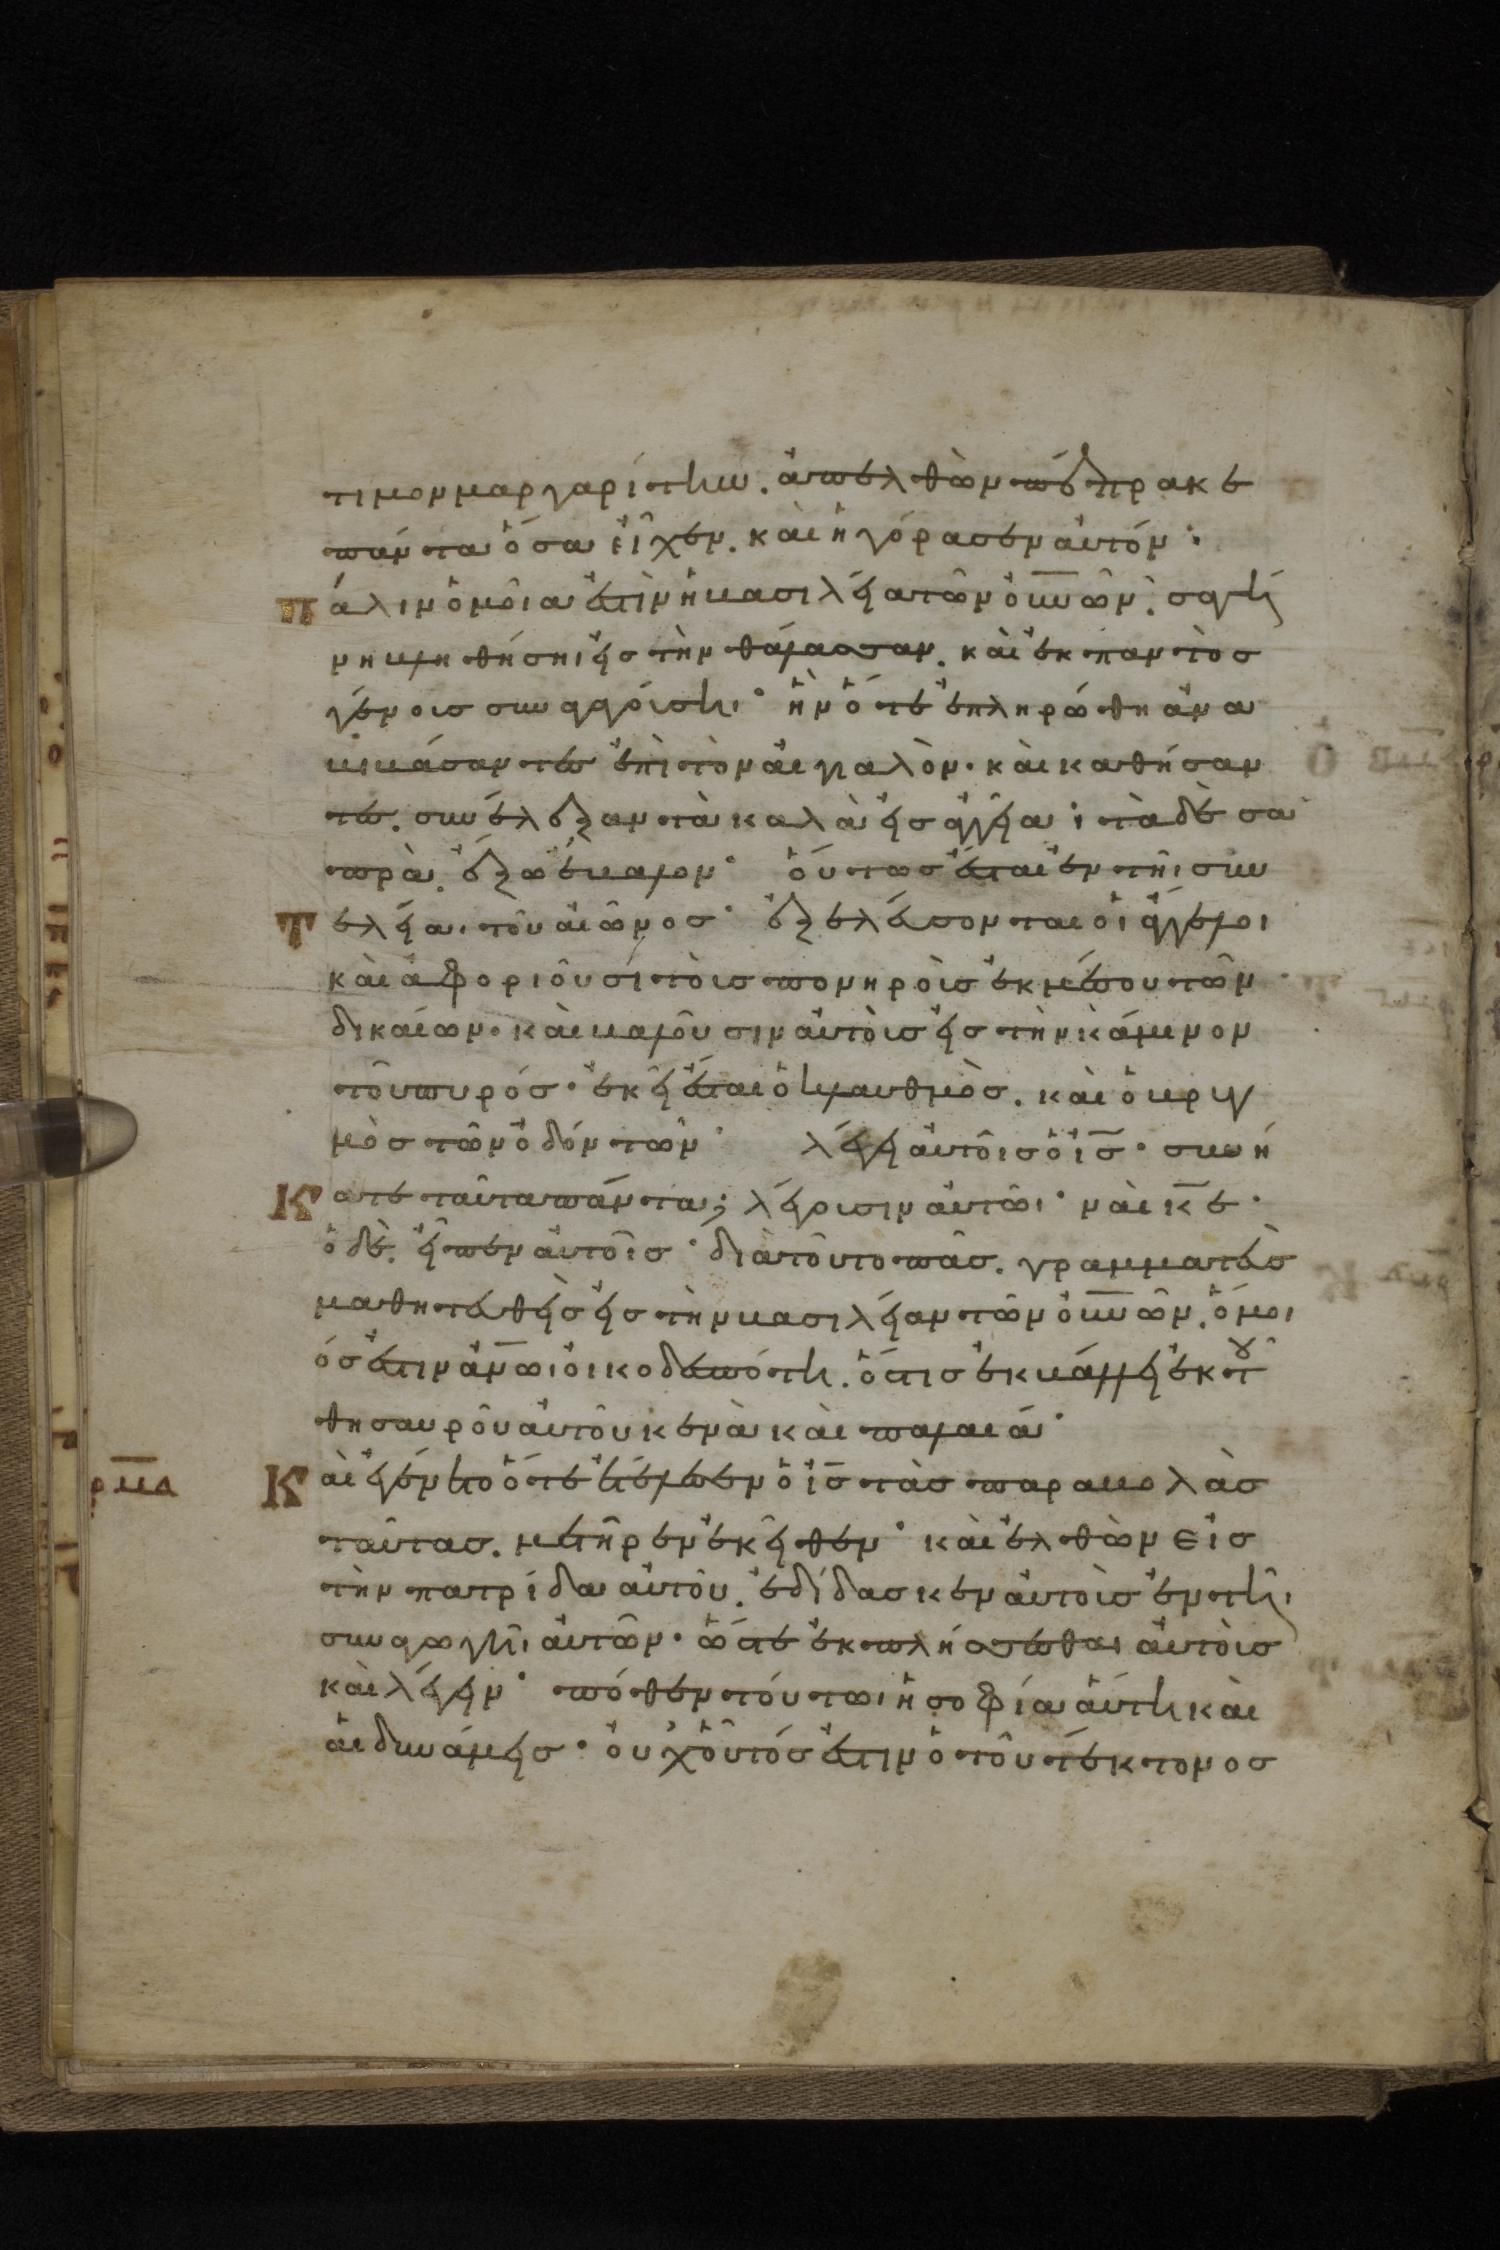 τιμον μαργαρίτην. ἀπελθὼν πέπρακε
πάντα ὅσα εἶχεν. καὶ ἠγόρασεν αὐτόν·
Πάλιν ὁμοῖα ἐστὶν ἡ βασιλεία τῶν οὐνῶν. σαγή
νη βληθήσηι εἰς τὴν θάλασσαν. καὶ ἐκ παντὸς
γένοις συναγαγόυση· ἣν ὅτε ἐπληρώθη ἀνα
βιβάσαντες ἐπὶ τὸν αἰγιαλὸν. καὶ καθήσαν
τες. συνέλεξαν τὰ καλὰ εἰς ἀγγεῖα· τὰ δὲ σα
πρὰ. ἔξω ἔβαλον· οὕτως ἔσται ἐν τῆι συν
Τελεία τοῦ αἰῶνος· ἐξελέυσονται οἱ ἄγγελοι
καὶ ἀφοριοῦσι τοὶς πονηροὶς ἐκ μέσου τῶν
δικαίων. καὶ βαλοῦσιν αὐτοὶς εἰς τὴν κάμινον
τοῦ πυρός· ἐκεῖ ἔσται ὁ κλαυθμὸς. καὶ ὁ βρυγ
μὸς τῶν ὀδόντων· λέγει αὐτοῖς ὁ ἰς· συνή
Κατε ταῦτα πάντα; λέγουσιν αὐτῶι· ναὶ κε·
ὁ δὲ. εἶπεν αὐτοῖς· διὰ τοῦτο πᾶς. γραμματεὺς
μαθητευθεὶς εἰς τὴν βασιλείαν τῶν οὐνῶν. ὅμοι
ός ἐστιν ἀνωι οἰκοδεσπότη. ὅστις ἐκβάλλει ἐκ τοῦ
θησαυροῦ αὐτοῦ κενὰ καὶ παλαιά·
ρμα Καὶ ἐγένετο ὅτε ἐτέλεσεν ὁ ἰς τὰς παραβολὰς
ταῦτας. μετῆρεν ἐκεῖθεν· καὶ ἐλθὼν εἰς
τὴν πατρίδα αὐτοῦ. ἐδίδασκεν αὐτοὶς ἐν τῆι
συναγωγῆι αὐτῶν· ὥστε ἐκπλήσσεσθαι αὐτοὶς
καὶ λέγειν· πόθεν τούτωι ἡ σοφία αὕτη καὶ
αἱ δυνάμεις· οὐχ οὗτός ἐστιν ὁ τοῦ τέκτονος